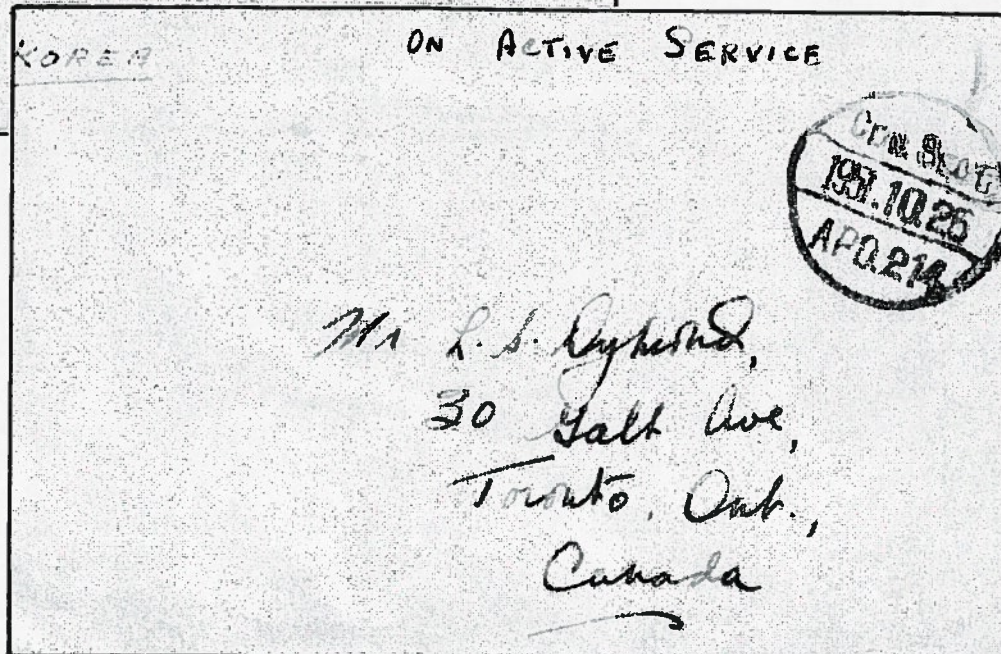 KOREA
ON ACTIVE SERVICE
CDN
1951.10.26
A.P.O. 214
Mr L. S. Dymond,
30 Galt Ave,
Toronto, Ont.,
Canada